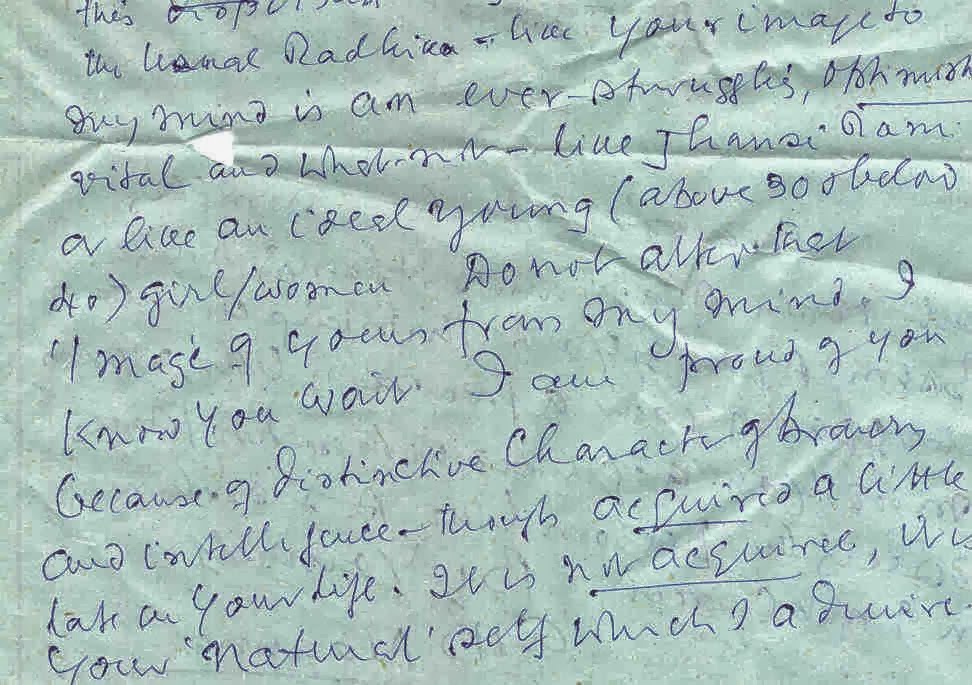 this
the Radhika - like your image to
my mind is an ever-struggling, optimist
vital and what-not - like Jhansi Rani
or like an ideal young (above 30 & below
40) girl/women Do not alter that
image of yours from my mind. I
know you wait. I am proud of you
because of distinctive Character of bravery
and intelligence - though acquired a little
late in your life. It is not acquired, it is
your 'natural' self which I admire